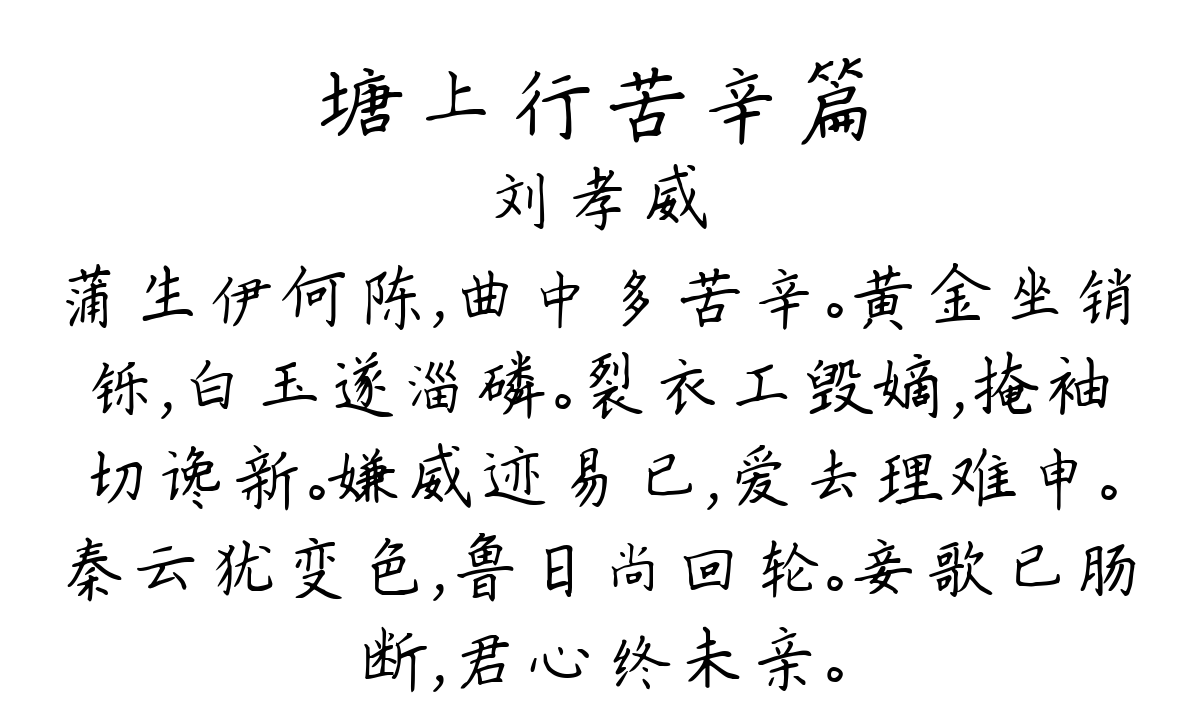 塘上行苦辛篇
刘孝威
蒲生伊何陈,曲中多苦辛。黄金坐销
铄,白玉遂淄磷。裂衣工毁嫡,掩袖
切谗新。嫌威迹易已,爱去理难申。
秦云犹变色,鲁日尚回轮。妾歌已肠
断,君心终未亲。